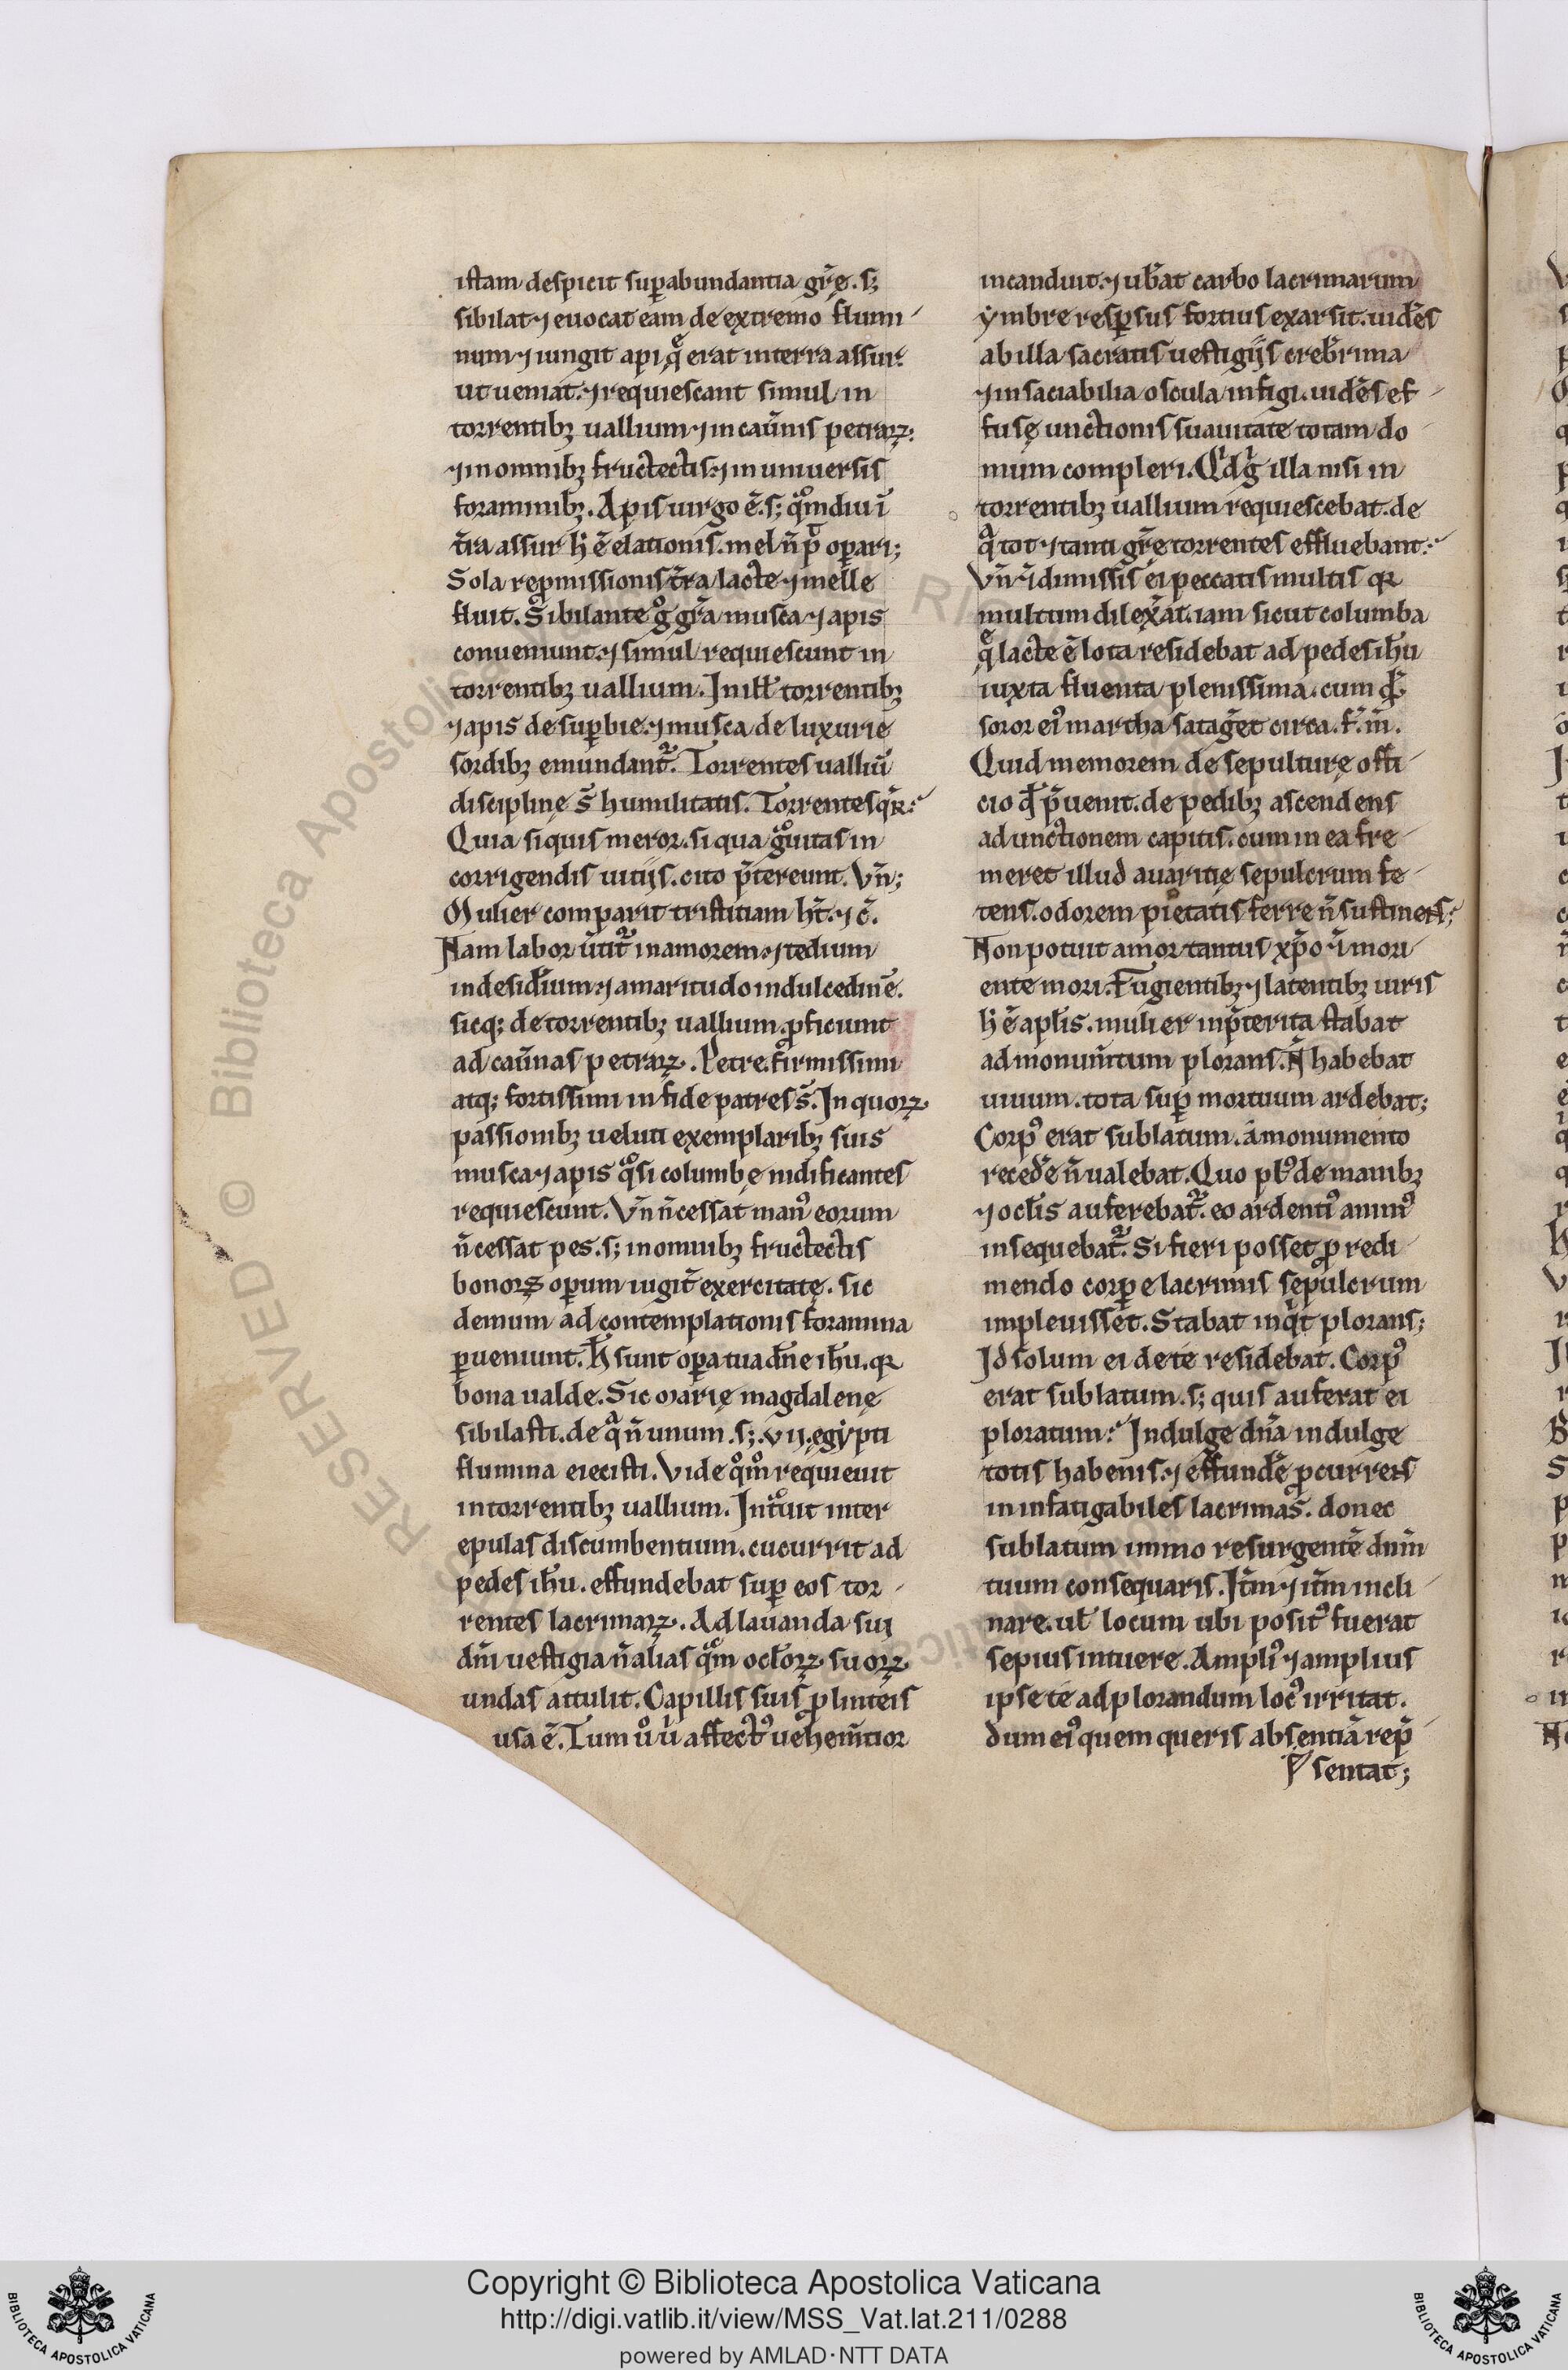 istam despicit suꝑabundantia gr̄ę. s;
sibilat ⁊ euocat eam de extremo flumi
num ⁊ iungit api q̄ erat in terra assur.
ut ueniat. ⁊ requiescant simul in
torrentibꝫ uallium ⁊ in cau̅nis petraꝝ.
⁊ in omnibꝫ fructectis. ⁊ in uniuersis
foraminibꝫ. Apis uirgo ē. s; qͦmdiu ī
t̄ra assur h̄ ē elationis. mel n̄ p̄ oꝑari;
Sola repmissionis t̄ra lacte ⁊ melle
fluit. Sibilante gͦ gr̄a musca ⁊ apis
conueniunt. ⁊ simul requiescunt in
torrentibꝫ uallium. In ill̄ torrentibꝫ
⁊ apis de suꝑbie. ⁊ musca de luxurie
sordibꝫ emundant᷑. Torrentes ualliū
disciplinę s̄ humilitatis. Torrentes qr̄.
Quia siquis meror. si qua gͣuitas in
corrigendis uitiis. cito p̄tereunt. Vn̄;
Mulier cum parit tristitiam ht̄. ⁊ c̄.
Nam labor u̅tit᷑ in amorem. ⁊ tedium
in desid̄ium. ⁊ amaritudo in dulcedinē.
sicq; de torrentibꝫ uallium ꝓficiunt
ad cau̅nas petraꝝ. Petre. firmissimi
atq; fortissimi in fide patres s̄. In quoꝝ
passionibꝫ ueluti exemplaribꝫ suis
musca ⁊ apis qͣsi columbę nidificantes
requiescunt. Vn̄ n̄ cessat manꝰ eorum
n̄ cessat pes. s; in omnibꝫ fructectis
bonoꝝ oꝑum iugit̄ exercitatę. sic
demum ad contemplationis foramina
ꝑueniunt. H̄ sunt oꝑa tua dn̄e ih̄u. qꝛ
bona ualde. Sic marię magdalenę
sibilasti. de qͣ n̄ unum. s;. vij. egypti
flumina eiecisti. Vide qͦmͦ requieuit
in torrentibꝫ uallium. Intͣuit inter
epulas discumbentium. cucurrit ad
pedes ih̄u. effundebat suꝑ eos tor
rentes lacrimaꝝ. Ad lauanda sui
dn̄i uestigia n̄ alias qͣm ocl̄oꝝ suoꝝ
undas attulit. Capillis suis ꝓ linteis
usa ē. Tum uͦ ů affectꝰ uehem̄tior
incanduit. ⁊ ub̄at carbo lacrimarum
ymbre resꝑsus fortius exarsit. uidēs
ab illa sacratis uestigijs creb̄rima
⁊ insaciabilia oscula infigi. uidēs ef
fusę unctionis suauitate totam do
mum compleri. Qͥd gͥ illa nisi in
torrentibꝫ uallium requiescebat. de
qͣ tot ⁊ tanti gr̄e torrentes effluebant.
Vn̄ ⁊ dimissis ei peccatis multis qꝛ
multum dilex̄at. iam sicut columba
q̄ lacte ē lota residebat ad pedes ih̄u
iuxta fluenta plenissima. cum
soror eiꝰ martha satag̅et circa. f. m̄.
Quid memorem de sepulturę offi
cio qd̄ p̄uenit. de pedibꝫ ascendens
ad unctionem capitis. cum in ea fre
meret illud auaritię sepulcrum fe
tens. odorem pietatis ferre n̄ sustinens;
Non potuit amor tantus xp̄o ⁊ mori
ente mori. Fugientibꝫ ⁊ latentibꝫ uiris
h̄ ē apl̄is. mulier inp̄terita stabat
ad monum̅tum plorans. N̄ habebat
uiuum. tota suꝑ mortuum ardebat;
Corpꝰ erat sublatum. a monumento
reced̄e n̄ ualebat. Quo pl̄ꝰ de manibꝫ
⁊ ocl̄is auferebat᷑. eo ardentiꝰ animꝰ
insequebat᷑. Si fieri posset ꝓ redi
mendo corꝑe lacrimis sepulcrum
impleuisset. Stabat inqͥt plorans;
Id solum ei de te residebat. Corpꝰ
erat sublatum. s; quis auferat ei
ploratum. Indulge dn̄a indulge
totis habenis. ⁊ effund̄e ꝓcurrens
in infatigabiles lacrimas. donec
sublatum immo resurgentē dn̄m
tuum consequaris. It̄m ⁊ it̄m incli
nare. ut̄ locum ubi positꝰ fuerat
sepius intuere. Ampliꝰ ⁊ amplius
ipse te ad plorandum locꝰ irritat.
dum eiꝰ quem queris absentiā rep̄
sentat;
Copyright © Biblioteca Apostolica Vaticana
http://digi.vatlib.it/view/MSS_Vat.lat.211/0288
powered by AMLAD·NTT DATA